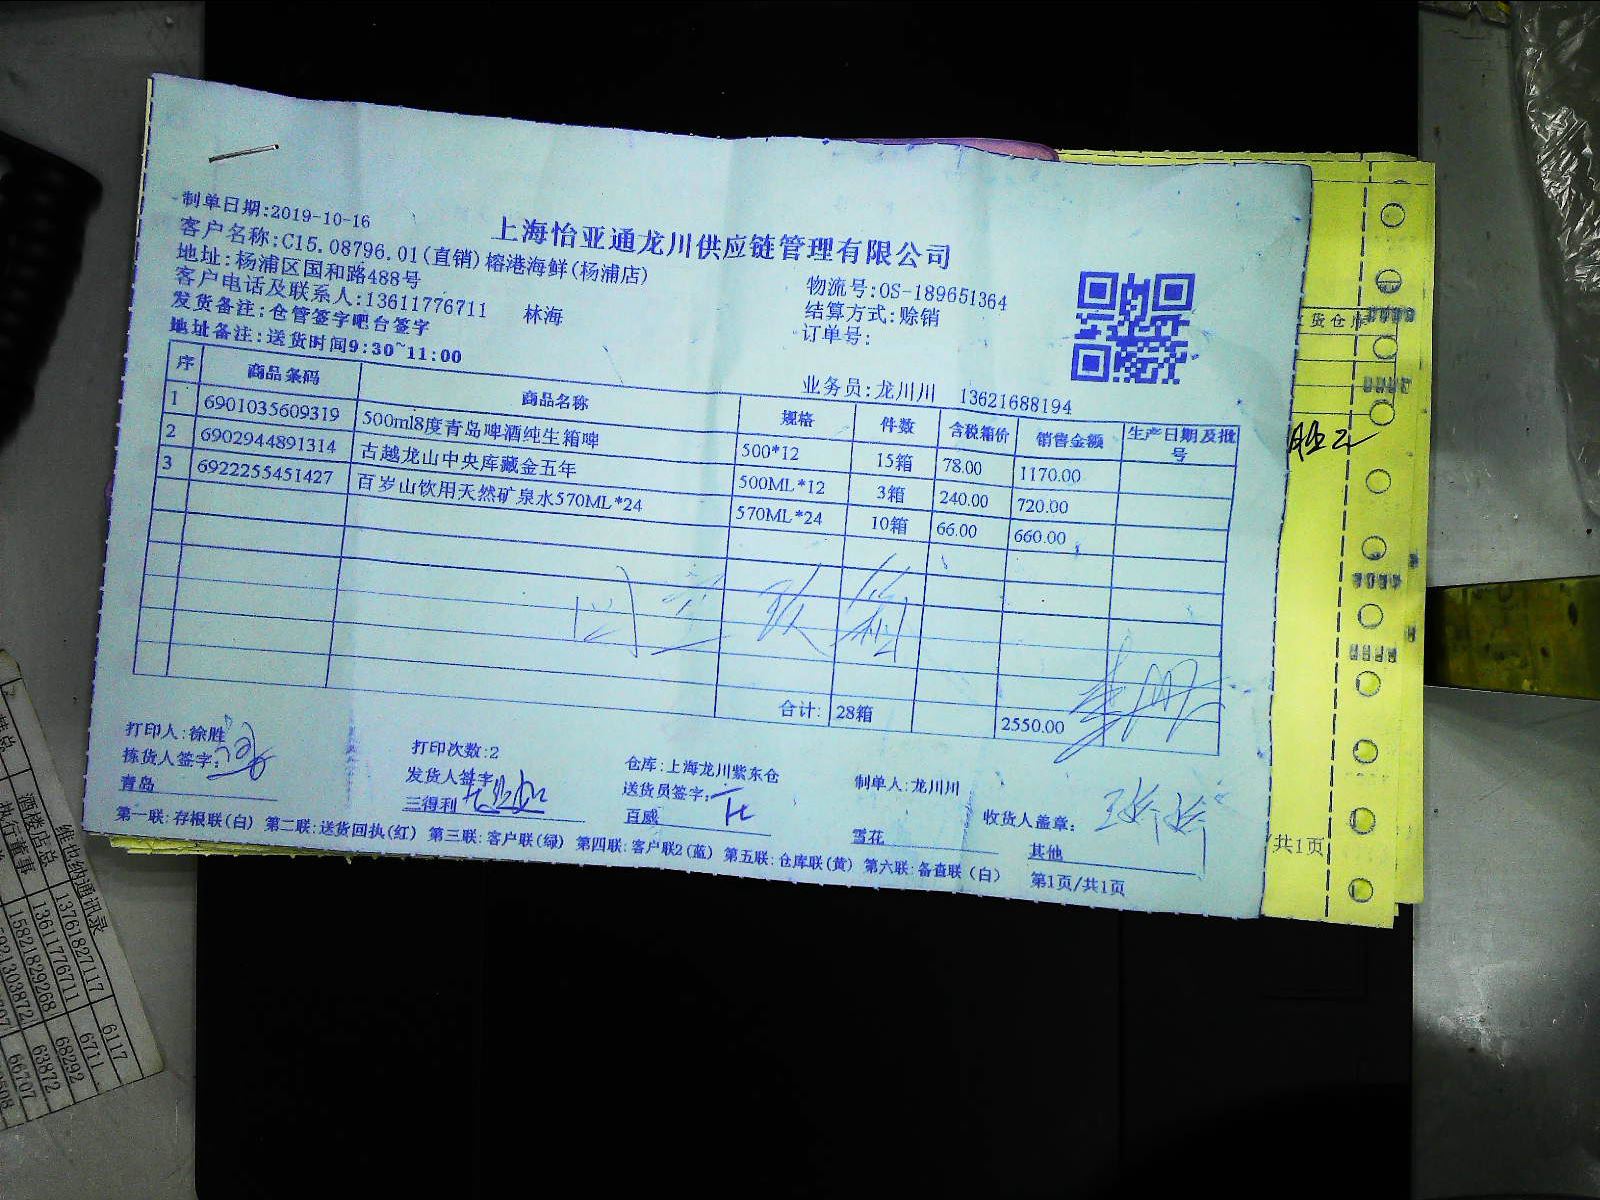 制单日期:2019-10-16
上海怡亚通龙川供应链管理有限公司
客户名称:C15.08796.01(直销)榕港海鲜(杨浦店)
地址:杨浦区国和路488号
客户电话及联系人:13611776711 林海
发货备注:仓管签字吧台签字
地址备注:送货时间9:30~11:00
物流号:OS-189651364
结算方式:赊销
订单号:
业务员:龙川川 13621688194
序 商品条码 商品名称 规格 件数 含税箱价 销售金额 生产日期及批号
1 6901035609319 500ml8度青岛啤酒纯生箱啤 500*12 15箱 78.00 1170.00
2 6902944891314 古越龙山中央库藏金五年 500ML*12 3箱 240.00 720.00
3 6922255451427 百岁山饮用天然矿泉水570ML*24 570ML*24 10箱 66.00 660.00
合计: 28箱 2550.00
打印人:徐胜 打印次数:2 仓库:上海龙川紫东仓 制单人:龙川川
拣货人签字: 发货人签字: 送货员签字: 收货人盖章:
青岛 三得利 百威 雪花 其他
第一联:存根联(白) 第二联:送货回执(红) 第三联:客户联(绿) 第四联:客户联2(蓝) 第五联:仓库联(黄) 第六联:备查联(白) 第1页/共1页
货仓库
/共1页
维也纳通讯录
酒楼店总 13761827117 6117
执行董事 13611776711 6711
15821829268 68292
63872
66707